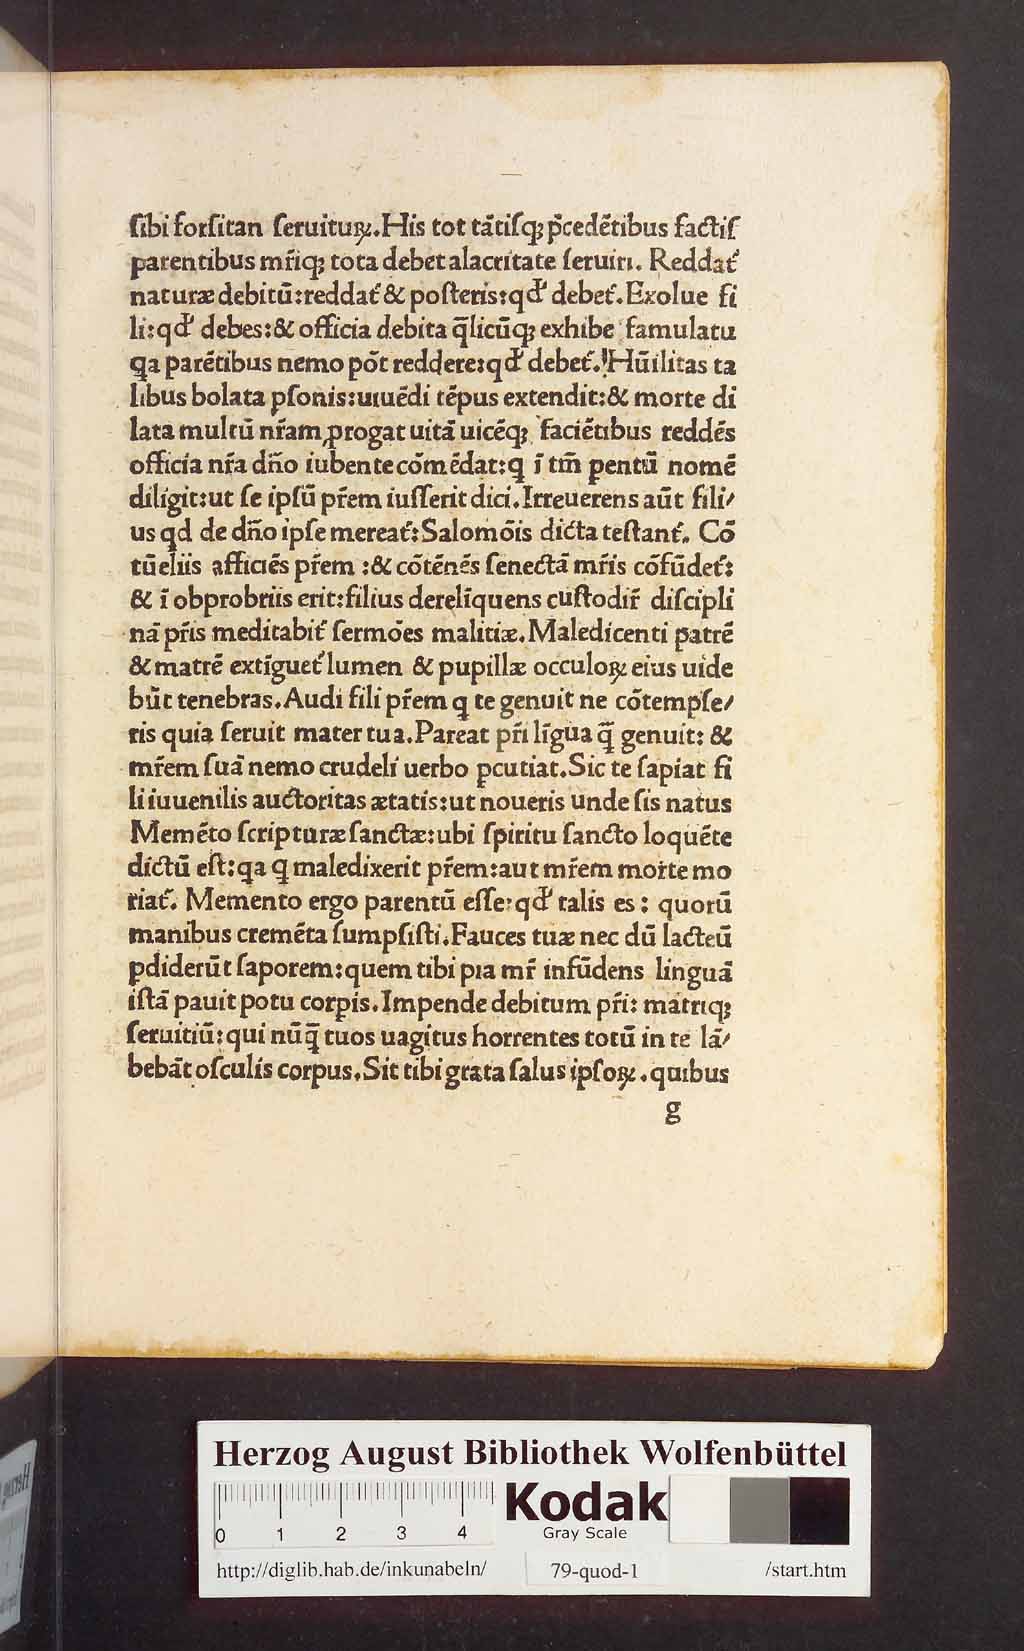 ſibi forſitan ſeruituꝝ.His tot tātiſqꝫ p̄cedētibus factiſ
parentibus mr̄iqꝫ tota debet alacritate ſeruiri. Reddat᷑
naturæ debitū:reddat᷑ & poſteris:qđ debet᷑.Exolue fi
li:qđ debes:& officia debita q̄licūqꝫ exhibe famulatu
qa parētibus nemo pōt reddere:qđ debet᷑.Hūilitas ta
libus bolata ꝑſonis:uiuēdi tēpus extendit:& morte di
lata multū nr̄am ꝓrogat uitā uicēqꝫ faciētibus reddēs
officia nr̄a dn̄o iubente cōmēdat:q ī tm̄ pentū nomē
diligit:ut ſe ipſū pr̄em iuſſerit dici.Irreuerens aūt fili/
us qd de dn̄o ipſe mereat᷑:Salomōis dicta teſtant᷑. Cō
tūeliis afficiēs pr̄em :& cōtēnēs ſenectā mr̄is cōfūdet᷑:
& ī obprobriis erit:filius derelīquens cuſtodir̄ diſcipli
nā pr̄is meditabit᷑ ſermōes malitiæ.Maledicenti patrē
& matrē extīguet᷑ lumen & pupillæ occuloꝝ eius uide
būt tenebras.Audi fili pr̄em q te genuit ne cōtempſe/
ris quia ſeruit mater tua.Pareat pr̄i līgua q̄ genuit: &
mr̄em ſuā nemo crudeli uerbo ꝑcutiat.Sic te ſapiat fi
li iuuenilis auctoritas ætatis:ut noueris unde ſis natus
Memēto ſcripturæ ſanctæ:ubi ſpiritu ſancto loquēte
dictū eſt:qa q maledixerit pr̄em:aut mr̄em morte mo
riat᷑. Memento ergo parentū eſſe:qđ talis es: quorū
manibus cremēta ſumpſiſti.Fauces tuæ nec dū lacteū
ꝑdiderūt ſaporem:quem tibi pia mr̄ infūdens linguā
iſtā pauit potu corꝑis.Impende debitum pr̄i: matriqꝫ
ſeruitiū:qui nūq̄ tuos uagitus horrentes totū in te lā/
bebāt oſculis corpus.Sit tibi grata ſalus ipſoꝝ.quibus
g
Herzog August Bibliothek Wolfenbüttel
0 1 2 3 4
Kodak
Gray Scale
http://diglib.hab.de/inkunabeln/ 79-quod-1 /start.htm